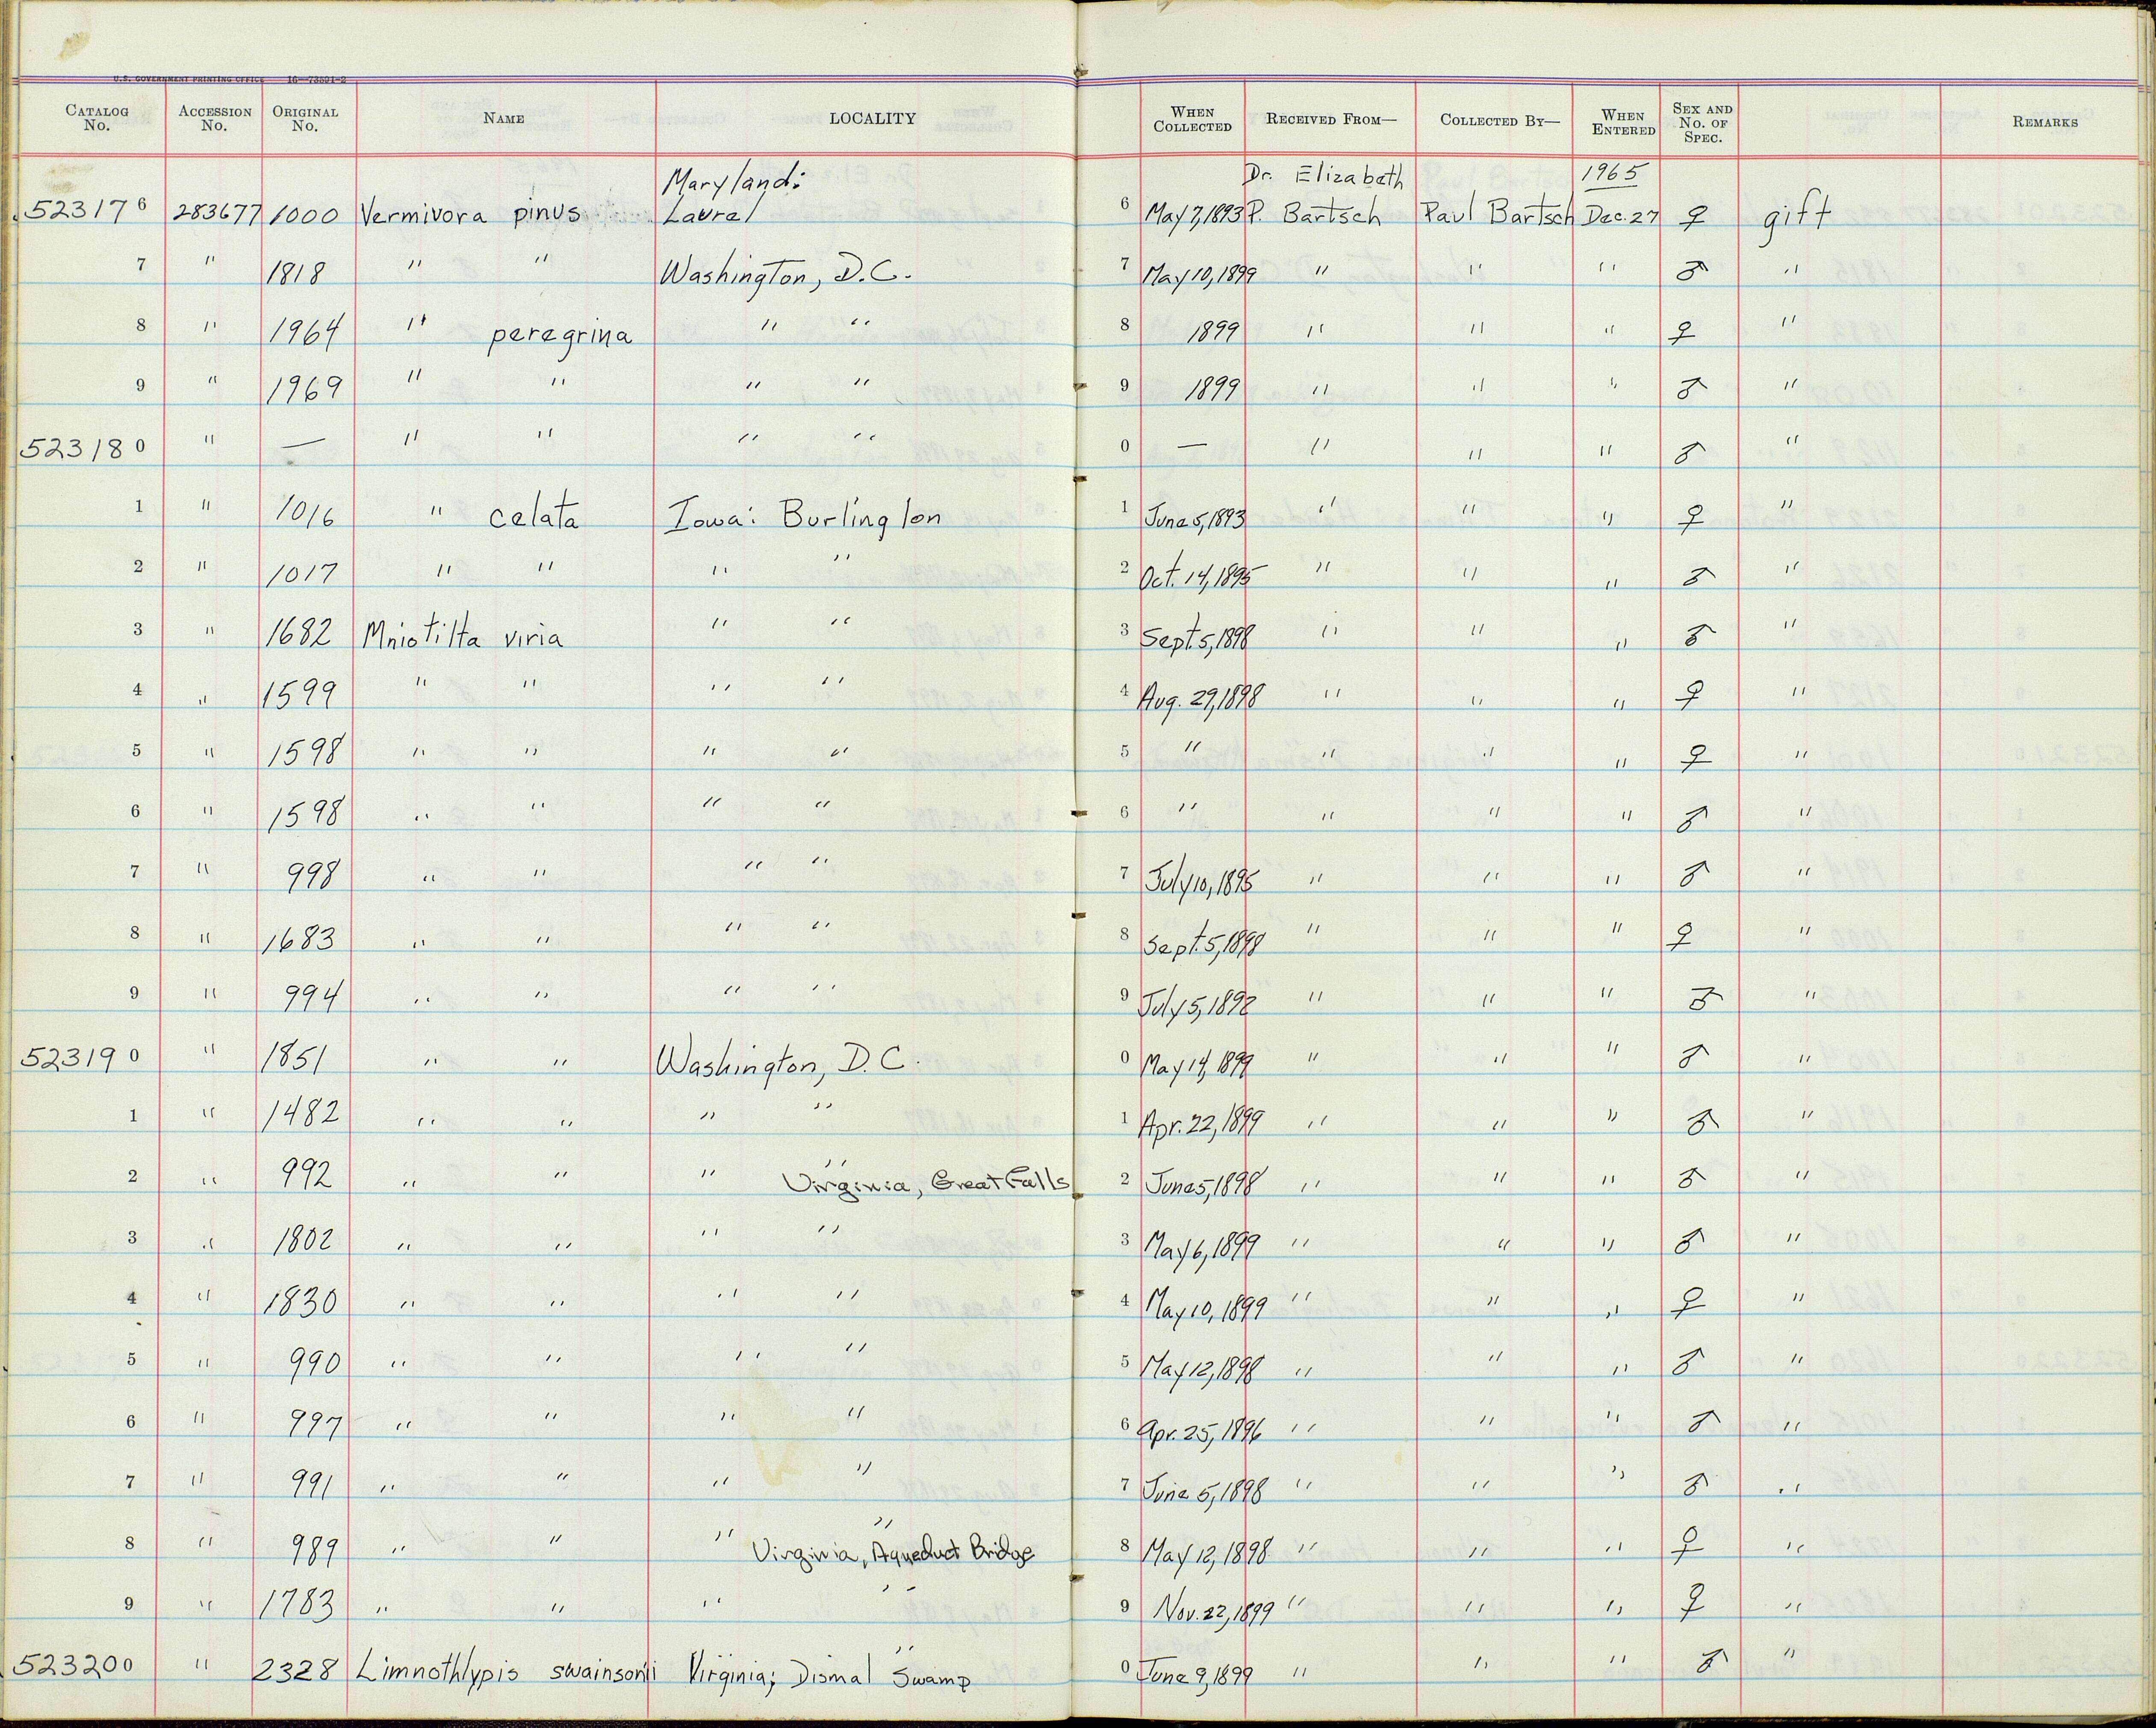 U.S. GOVERNMENT PRINTING OFFICE 16—73521-2
CATALOG No. ACCESSION No. ORIGINAL No. NAME LOCALITY WHEN COLLECTED RECEIVED FROM— COLLECTED BY— WHEN ENTERED SEX AND No. OF SPEC. REMARKS
Maryland: Dr. Elizabeth 1965
523176 283677 1000 Vermivora pinus Laurel 6 May 7, 1893 P. Bartsch Paul Bartsch Dec. 27 ♀ gift
7 " 1818 " " Washington, D.C. 7 May 10, 1899 " " " ♂ "
8 " 1964 " peregrina " " 8 1899 " " " ♀ "
9 " 1969 " " " " 9 1899 " " " ♂ "
523180 " — " " " " 0 — " " " ♂ "
1 " 1016 " celata Iowa: Burlington 1 June 5, 1893 " " " ♀ "
2 " 1017 " " " " 2 Oct. 14, 1895 " " " ♂ "
3 " 1682 Mniotilta viria " " 3 Sept. 5, 1898 " " " ♂ "
4 " 1599 " " " " 4 Aug. 29, 1898 " " " ♀ "
5 " 1598 " " " " 5 " " " " ♀ "
6 " 1598 " " " " 6 " " " " ♂ "
7 " 998 " " " " 7 July 10, 1895 " " " ♂ "
8 " 1683 " " " " 8 Sept. 5, 1898 " " " ♀ "
9 " 994 " " " " 9 July 5, 1892 " " " ♂ "
523190 " 1851 " " Washington, D.C. 0 May 14, 1899 " " " ♂ "
1 " 1482 " " " " 1 Apr. 22, 1899 " " " ♂ "
2 " 992 " " " " Virginia, Great Falls 2 June 5, 1898 " " " ♂ "
3 " 1802 " " " " 3 May 6, 1899 " " " ♂ "
4 " 1830 " " " " 4 May 10, 1899 " " " ♀ "
5 " 990 " " " " 5 May 12, 1898 " " " ♂ "
6 " 997 " " " " 6 Apr. 25, 1896 " " " ♂ "
7 " 991 " " " " 7 June 5, 1898 " " " ♂ "
8 " 989 " " " " Virginia, Aqueduct Bridge 8 May 12, 1898 " " " ♀ "
9 " 1783 " " " " 9 Nov. 22, 1899 " " " ♀ "
523200 " 2328 Limnothlypis swainsonii Virginia; Dismal Swamp " 0 June 9, 1899 " " " ♂ "